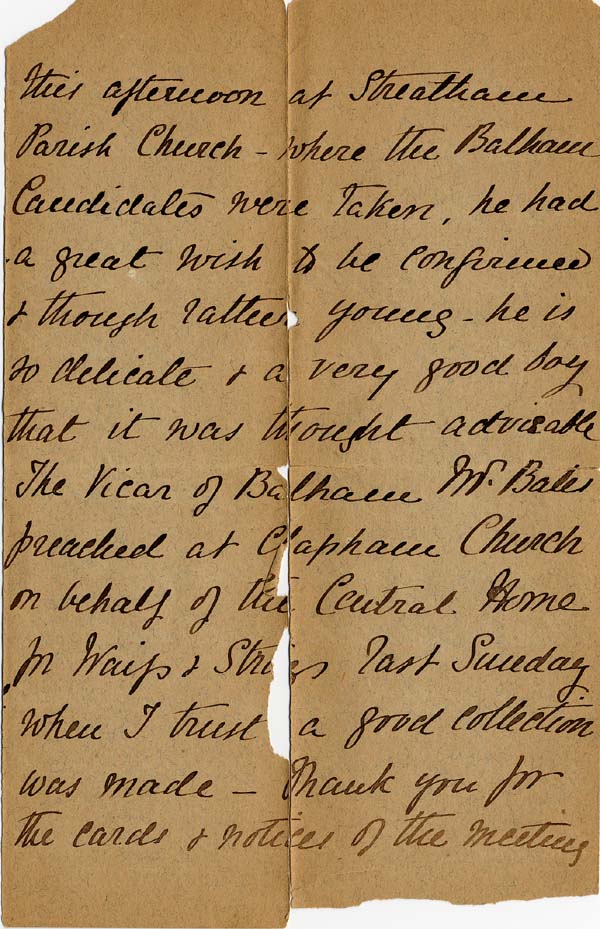 this afternoon at Streatham
Parish Church - where the Balham
Candidates were taken, he had
a great wish to be confirmed
& though rather young - he is
so delicate & a very good boy
that it was thought advisable
The Vicar of Balham Mr. Bates
preached at Clapham Church
on behalf of the Central Home
for Waifs & Strays last Sunday
when I trust a good collection
was made - Thank you for
the cards & notices of the meeting